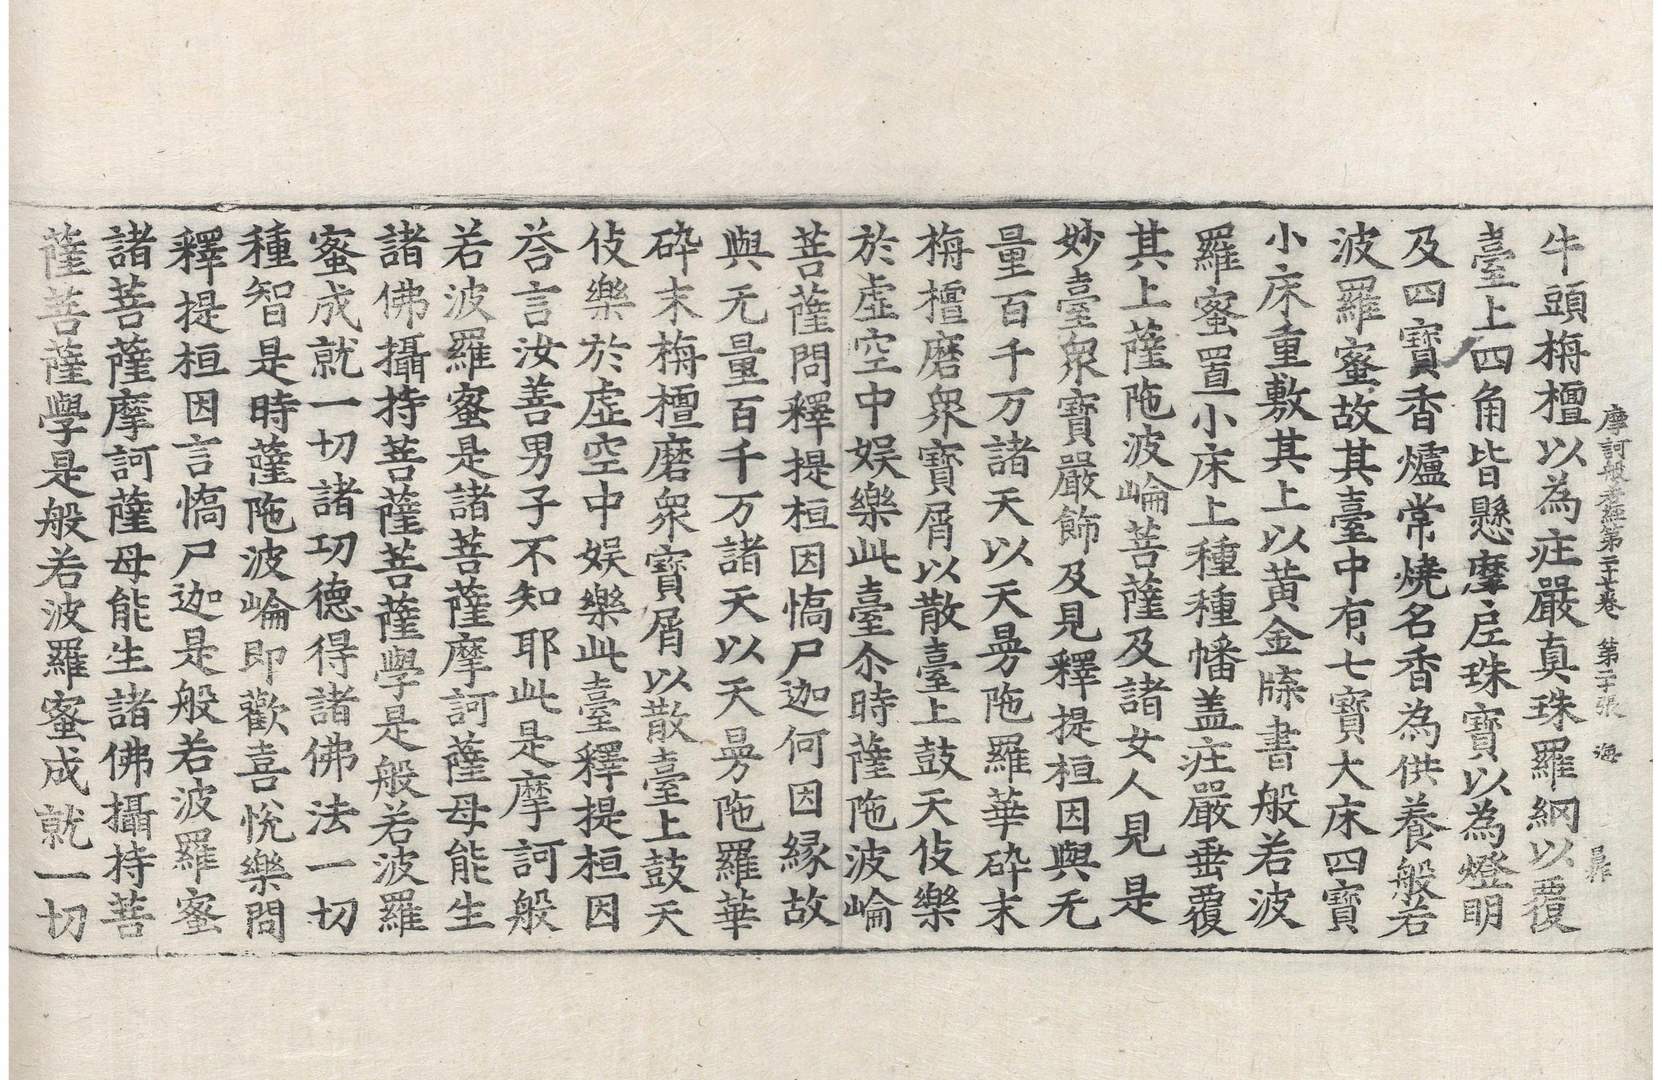 摩訶般若經第二十七卷 第二十張 海
牛頭栴檀以為庄嚴真珠羅網以覆
臺上四角皆懸摩㞐珠寶以為燈明
及四寶香爐常燒名香為供養般若
波羅蜜故其臺中有七寶大床四寶
小床重敷其上以黃金牒書般若波
羅蜜置小床上種種幡盖庄嚴垂覆
其上薩陁波崘菩薩及諸女人見是
妙臺衆寶嚴飾及見釋提桓因與无
量百千万諸天以天曼陁羅華碎末
栴檀磨衆寶屑以散臺上鼓天伎樂
於虛空中娱樂此臺尒時薩陁波崘
菩薩問釋提桓因憍尸迦何因緣故
與无量百千万諸天以天曼陁羅華
碎末栴檀磨衆寶屑以散臺上鼓天
伎樂於虛空中娱樂此臺釋提桓因
荅言汝善男子不知耶此是摩訶般
若波羅蜜是諸菩薩摩訶薩母能生
諸佛攝持菩薩菩薩學是般若波羅
蜜成就一切諸功德得諸佛法一切
種智是時薩陁波崘即歡喜悅樂問
釋提桓因言憍尸迦是般若波羅蜜
諸菩薩摩訶薩母能生諸佛攝持菩
薩菩薩學是般若波羅蜜成就一切